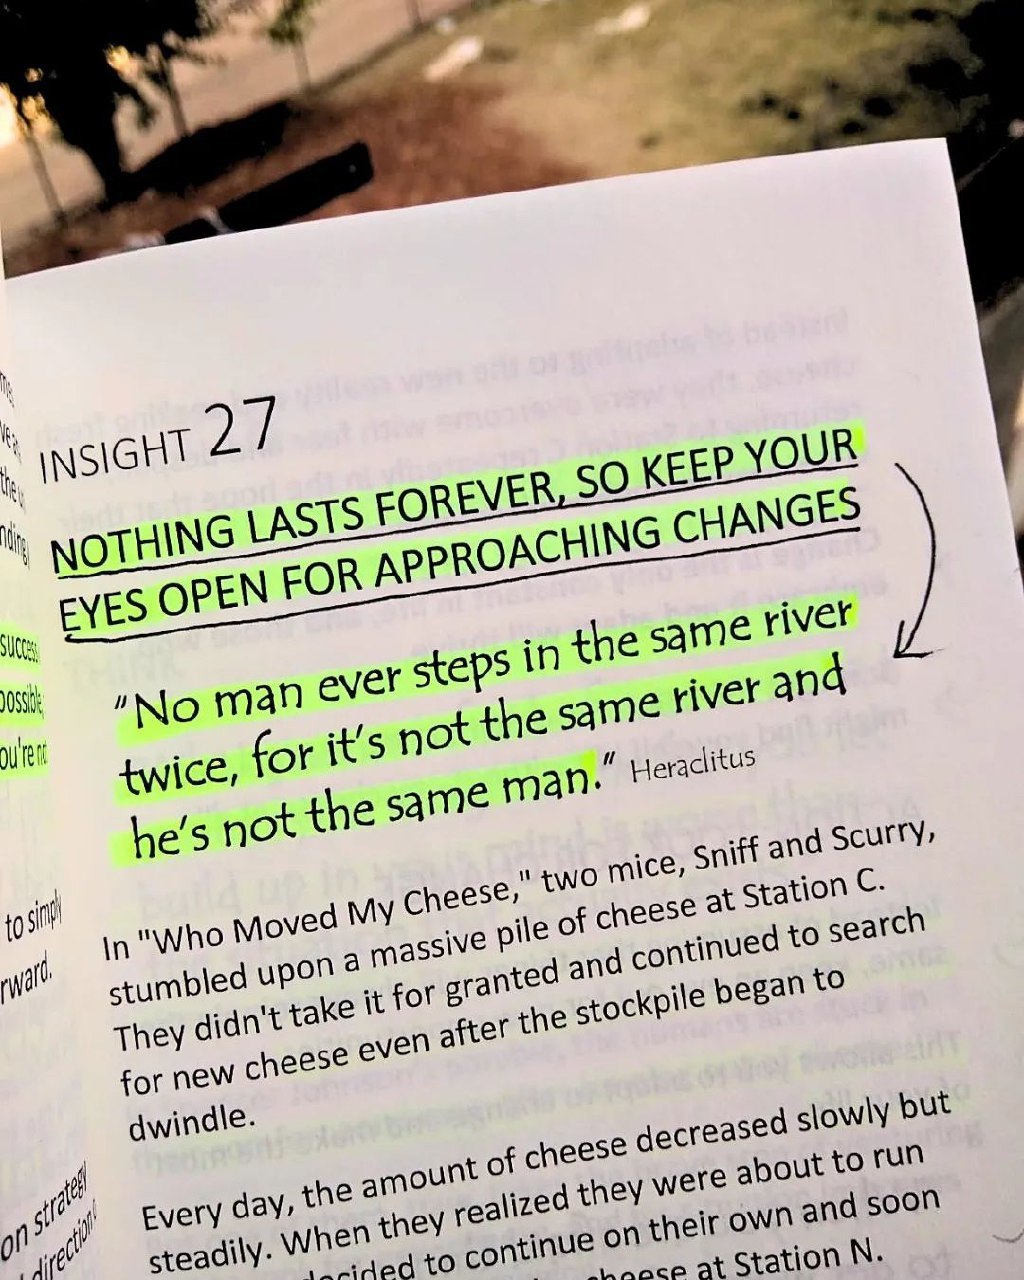 INSIGHT 27
NOTHING LASTS FOREVER, SO KEEP YOUR
EYES OPEN FOR APPROACHING CHANGES
"No man ever steps in the same river
twice, for it's not the same river and
he's not the same man." Heraclitus
In "Who Moved My Cheese," two mice, Sniff and Scurry,
stumbled upon a massive pile of cheese at Station C.
They didn't take it for granted and continued to search
for new cheese even after the stockpile began to
dwindle.
Every day, the amount of cheese decreased slowly but
steadily. When they realized they were about to run
to continue on their own and soon
cheese at Station N.
success
possible
ou're
to simply
rward.
on strategy
direction